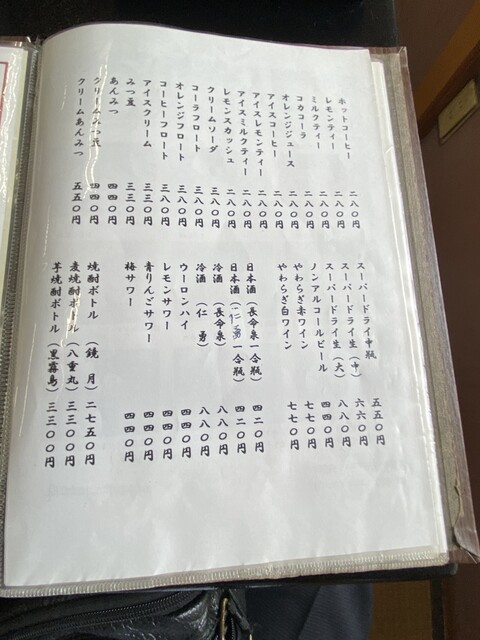 ホットコーヒー 二八〇円
レモンティー 二八〇円
ミルクティー 二八〇円
コカコーラ 二八〇円
オレンジジュース 二八〇円
アイスコーヒー 二八〇円
アイスレモンティー 二八〇円
アイスミルクティー 二八〇円
レモンスカッシュ 二八〇円
クリームソーダ 三八〇円
コーラフロート 三八〇円
オレンジフロート 三八〇円
コーヒーフロート 三八〇円
アイスクリーム 三三〇円
みつ豆 三三〇円
あんみつ 四四〇円
クリームみつ豆 四四〇円
クリームあんみつ 五五〇円
スーパードライ中瓶 五五〇円
スーパードライ生（中） 六六〇円
スーパードライ生（大） 八八〇円
ノンアルコールビール 四四〇円
やわらぎ赤ワイン 七七〇円
やわらぎ白ワイン 七七〇円
日本酒（長命泉一合瓶） 四二〇円
日本酒（仁勇一合瓶） 四二〇円
冷酒（長命泉） 八八〇円
冷酒（仁 勇） 八八〇円
ウーロンハイ 四四〇円
レモンサワー 四四〇円
青りんごサワー 四四〇円
梅サワー 四四〇円
焼酎ボトル（鏡 月） 二七五〇円
麦焼酎ボトル（八重丸） 三三〇〇円
芋焼酎ボトル（黒霧島） 三三〇〇円